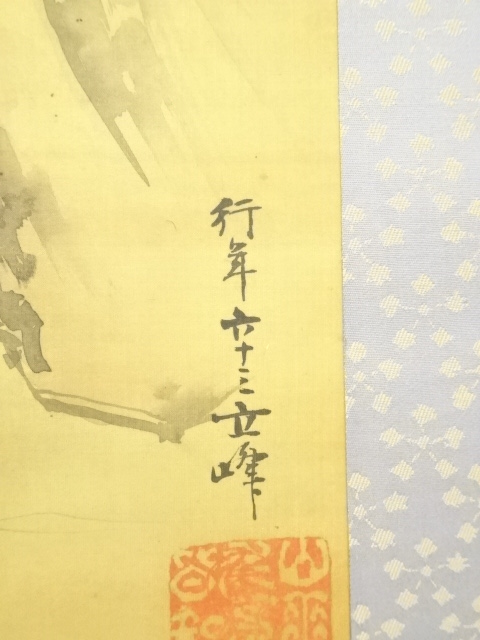 行年六十三立峰